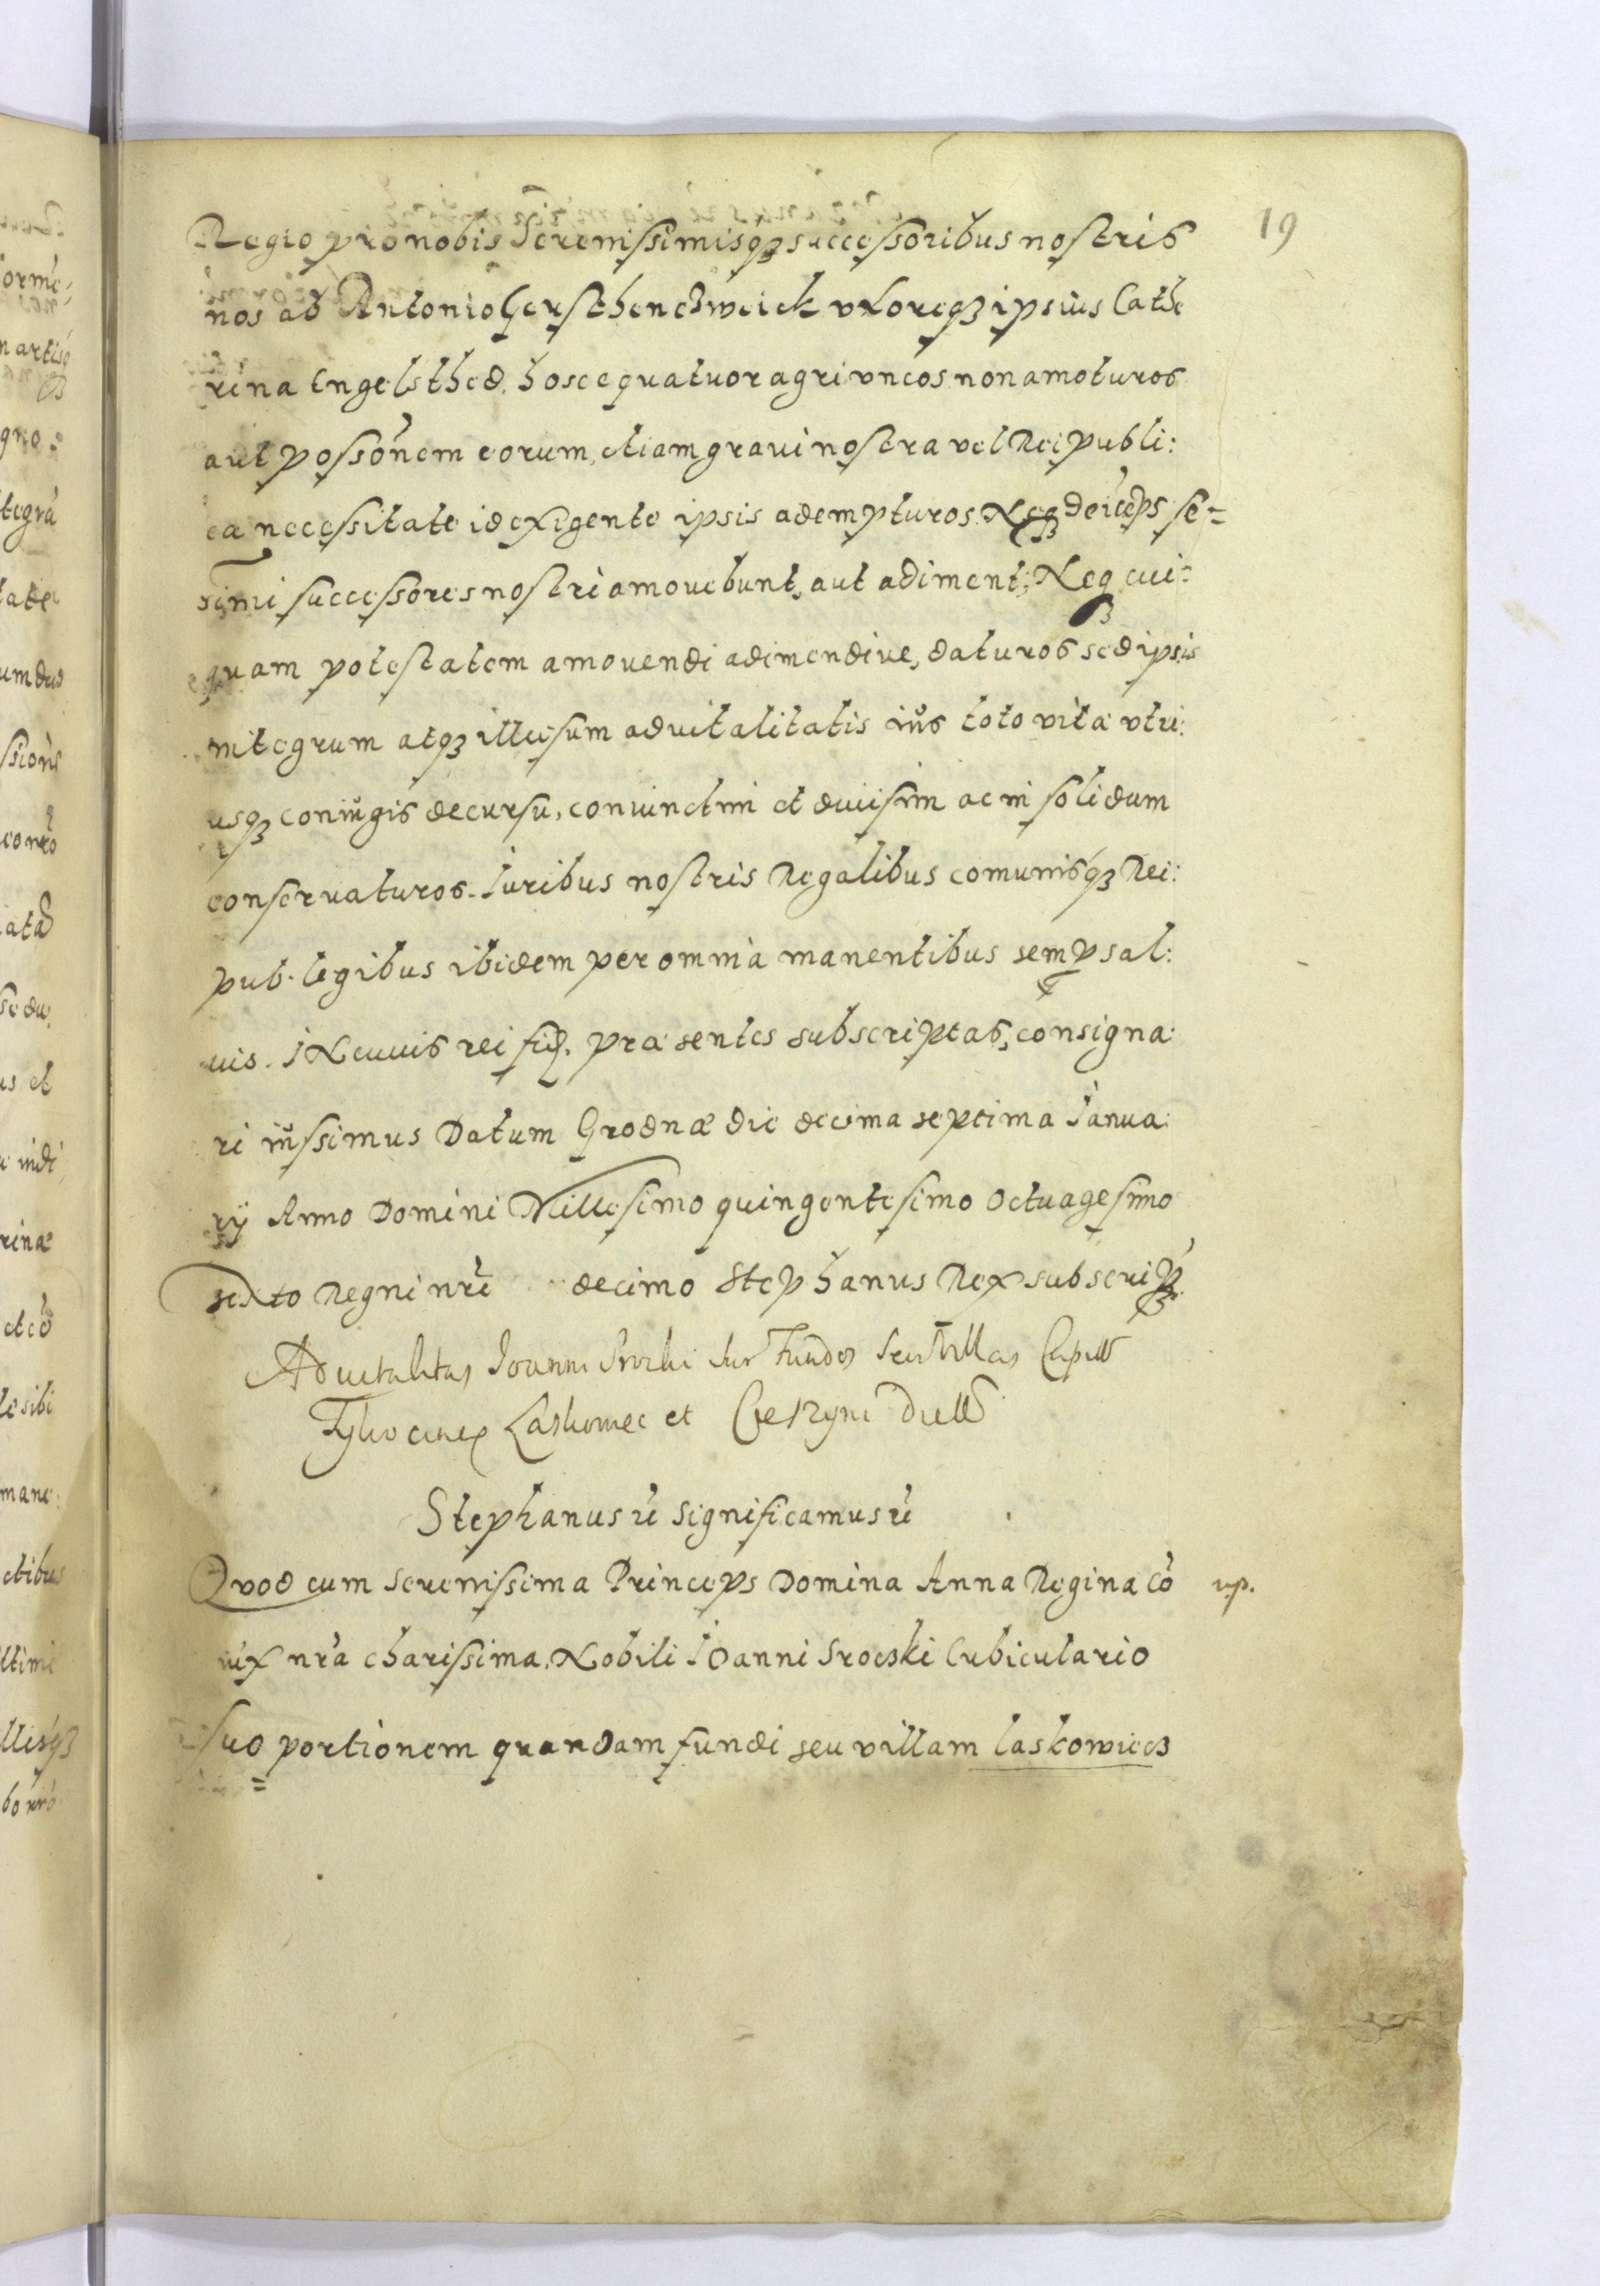 19
Regio pro nobis Serenissimisqȝ successoribus nostris
nos ab Antonio Gersthenczweick vxoreqȝ ipsius Cathe
rina Engelsthed. hosce quatuor agri vncos non amoturos
aut possonem eorum, etiam graui nostra vel Reipubli:
ca necessitate id exigente ipsis adempturos. Neqȝ deiceps se=
simi successores nostri amouebunt, aut adiment; Neqȝ cui:
quam potestatem amouendi adimendiue, daturos sed ipsis
integrum atqȝ illesum aduitalitatis ius toto vita vtri:
usqȝ coniugis decursu, coniunctim et diuisim ac in solidum
conseruaturos. Iuribus nostris Regalibus comunisqȝ Rei:
pub. legibus ibidem per omnia manentibus semp sal:
uis. IN cuius rei fid. præsentes subscriptas, consigna:
ri iussimus Datum Grodnæ die decima septima Ianua:
rij Anno Domini Millesimo quingentesimo Octuagesimo
sexto Regni nri decimo Stephanus Rex subscrip.
Aduitalitas Ioanni Srocki sup Fundos seu Villas Capitt
Tykocinen Laskowiec et
Stephanus ⁊c Significamus ⁊c
Quod cum Serenissima Princeps Domina Anna Regina Co up.
iux nra charissima, Nobili IOanni Srocski Cubiculario
suo portionem quandam fundi seu villam Laskowiecz